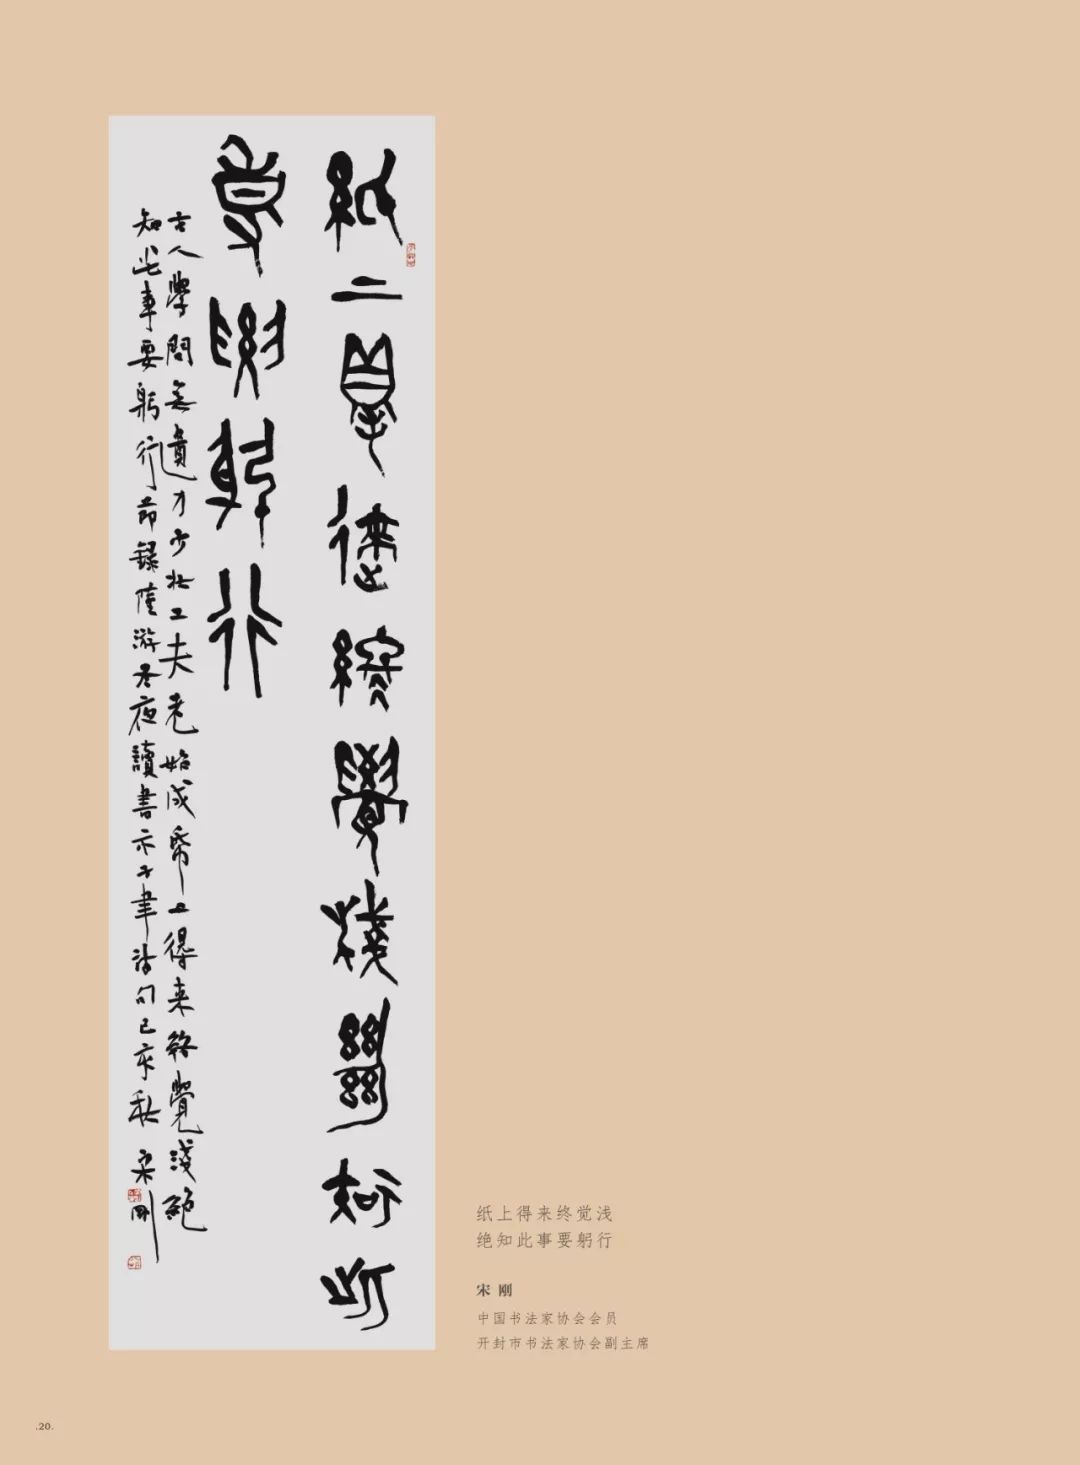 紙上得來終覺淺絕知此
事要躬行
古人學問無遺力少壯工夫老始成帋上得来終覺淺絕
知此事要躬行節録陸游冬夜讀書示子聿詩句己亥秋宋剛
纸上得来终觉浅
绝知此事要躬行
宋 刚
中国书法家协会会员
开封市书法家协会副主席
.20.